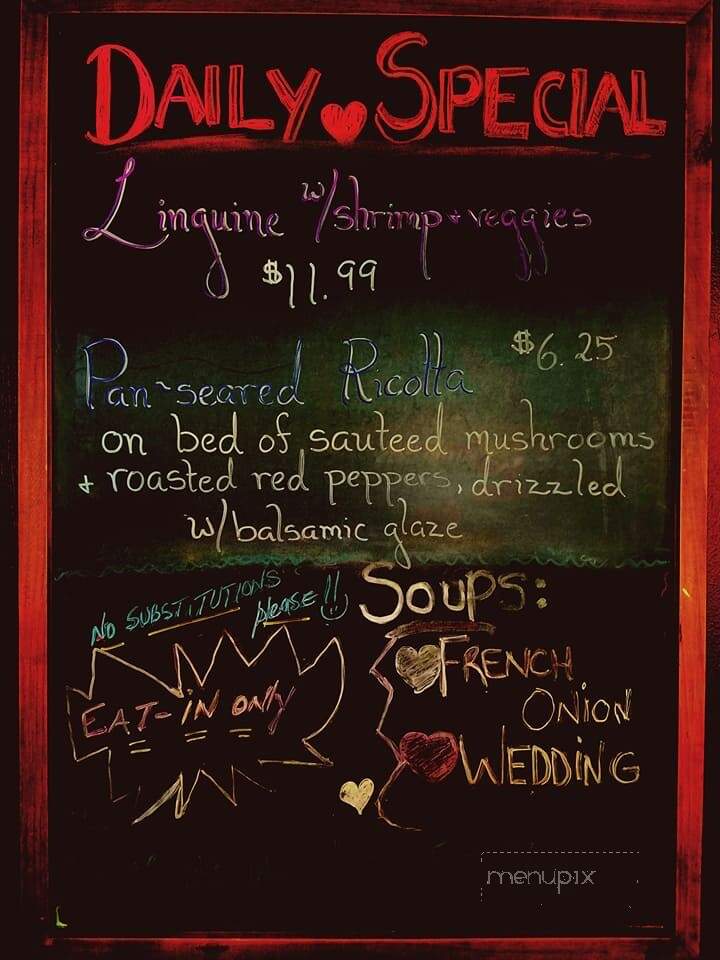 DAILY SPECIAL
Linguine w/shrimp + veggies
$11.99
Pan-seared Ricotta $6.25
on bed of sauteed mushrooms
+ roasted red peppers, drizzled
w/balsamic glaze
NO SUBSTITUTIONS
please!!
EAT-IN ONLY
SOUPS:
FRENCH
ONION
WEDDING
menupix